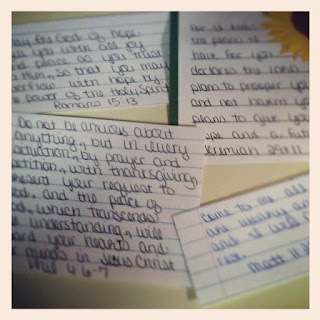 may the God of hope
you with all joy
and peace as you trust
n Him, so that you may
overflow with hope by
he power of the Holy Spirit
Romans 15:13
For I know
the plans I
have for you
declares the LORD
plans to prosper you
and not harm you
plans to give you
ope and a futu
Jeremiah 29:11
Do not be anxious about
anything, but in every
situation, by prayer and
petition, with thanksgiving,
resent your request to
od. And the peace of
od, which transcends
understanding, will
ard your hearts and
minds in Jesus Christ
Phil 4:6-7
come to me all
are weary an
and I will
rest.
Matt 11:2